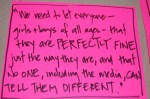 "We need to let everyone—
girls & boys of all ages - that
they are PERFECTLY FINE
just the way they are, and that
NO ONE, including the media, CAN
TELL THEM DIFFERENT."